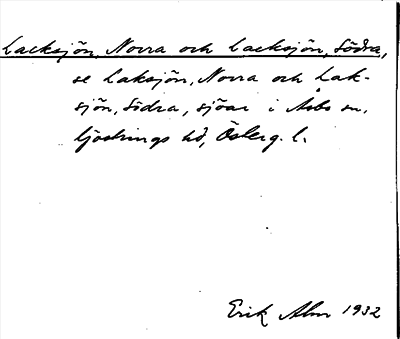 Lacksjön, Norra och Lacksjön, Södra,
se Laksjön, Norra och Lak-
sjön, Södra, sjöar i Åsbo sn,
Göstrings hd, Österg. l.
Erik Alm 1932